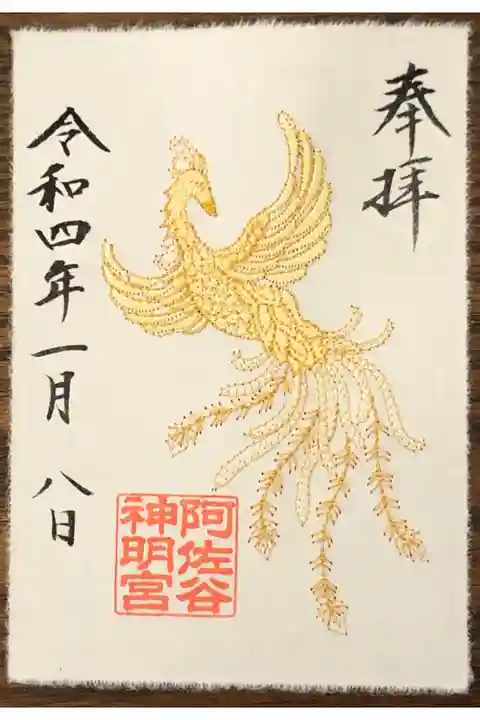 奉拝
阿佐谷
神明宮
令和四年一月八日